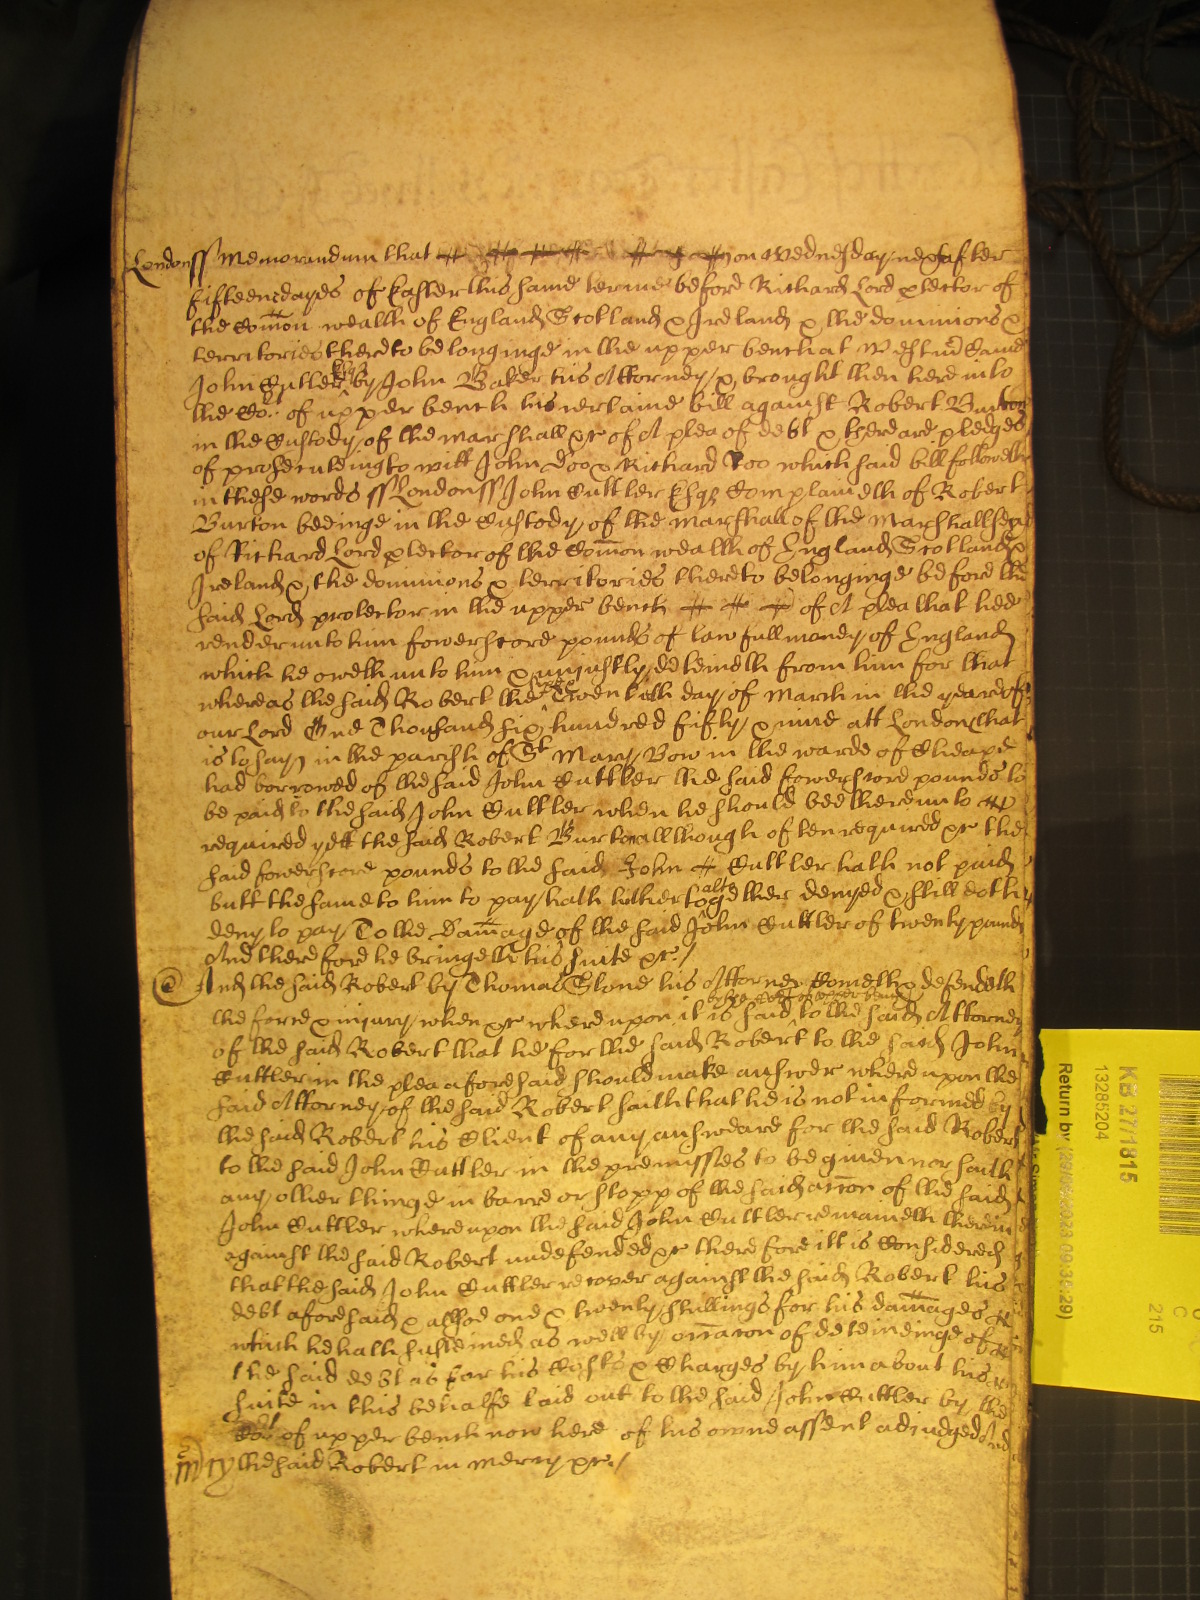 Londonss Memorandum that on Wednesday next after
fifteene dayes of Easter this same terme before Richard Lord protector of
the Com̄on wealth of England Scotland & Ireland & the dominions &
territories thereto belonginge in the upper bench at Westm̄ Came
John Cuttler Esqr by John Baker his Attorney & brought then here into
the Cort of upper bench his certaine bill against Robert Burton
in the Custody of the marshall &c of A plea of debt & there are pledges
of prosecuteing to witt John Doo & Richard Roo which said bill followeth
in these words ss Londonss John Cuttler Esqr Complaineth of Robert
Burton beeinge in the Custody of the marshall of the Marshallsea
of Richard Lord protector of the Com̄on wealth of England Scotland &
Ireland & the dominions & territories thereto belonginge before the
said Lord protector in the upper bench of A plea that hee
render unto him fowerscore pounds of lawfull money of England
which he oweth unto him & uniustly deteineth from him for that
whereas the said Robert the Twentith day of March in the yeare of
our Lord One Thousand six hundred fifty & nine att London that
is to say in the parish of St Mary Bow in the warde of Cheape
had borrowed of the said John Cuttler the said fowerscore pounds to
be paid to the said John Cuttler when he should bee thereunto
required yett the said Robert Burton allthough often required &c the
said fowerscore pounds to the said John Cuttler hath not paid
butt the same to him to pay hath hitherto altogether denyed & still doth
deny to pay To the Dam̄age of the said John Cuttler of twenty pounds
And therefore he bringeth his suite &c /
And the said Robert by Thomas Stone his Attorney Cometh & defendeth
the force & iniury when &c whereupon it is said before the Cort of upper bench to the said Attorney
of the said Robert that he for the said Robert to the said John
Cuttler in the plea aforesaid should make answer whereupon the
said Attorney of the said Robert saith that he is not informed by
the said Robert his Client of any answeare for the said Robert
to the said John Cuttler in the premisses to be given nor saith
any other thinge in barre or stopp of the said acc̄on of the said
John Cuttler whereupon the said John Cuttler remaineth therein
against the said Robert undefended &c therefore itt is Considered
that the said John Cuttler recover against the said Robert his
debt aforesaid & allsoe one & twenty shillings for his dam̄ages
which he hath susteined as well by occac̄on of deteineinge of
the said debt as for his Costs & Charges by him about his
suite in this behalfe laid out to the said John Cuttler by the
Cort of upper bench now here of his owne assent adiudged And
m̄cy the said Robert in mercy &c /
KB 27/1815
13285204
215